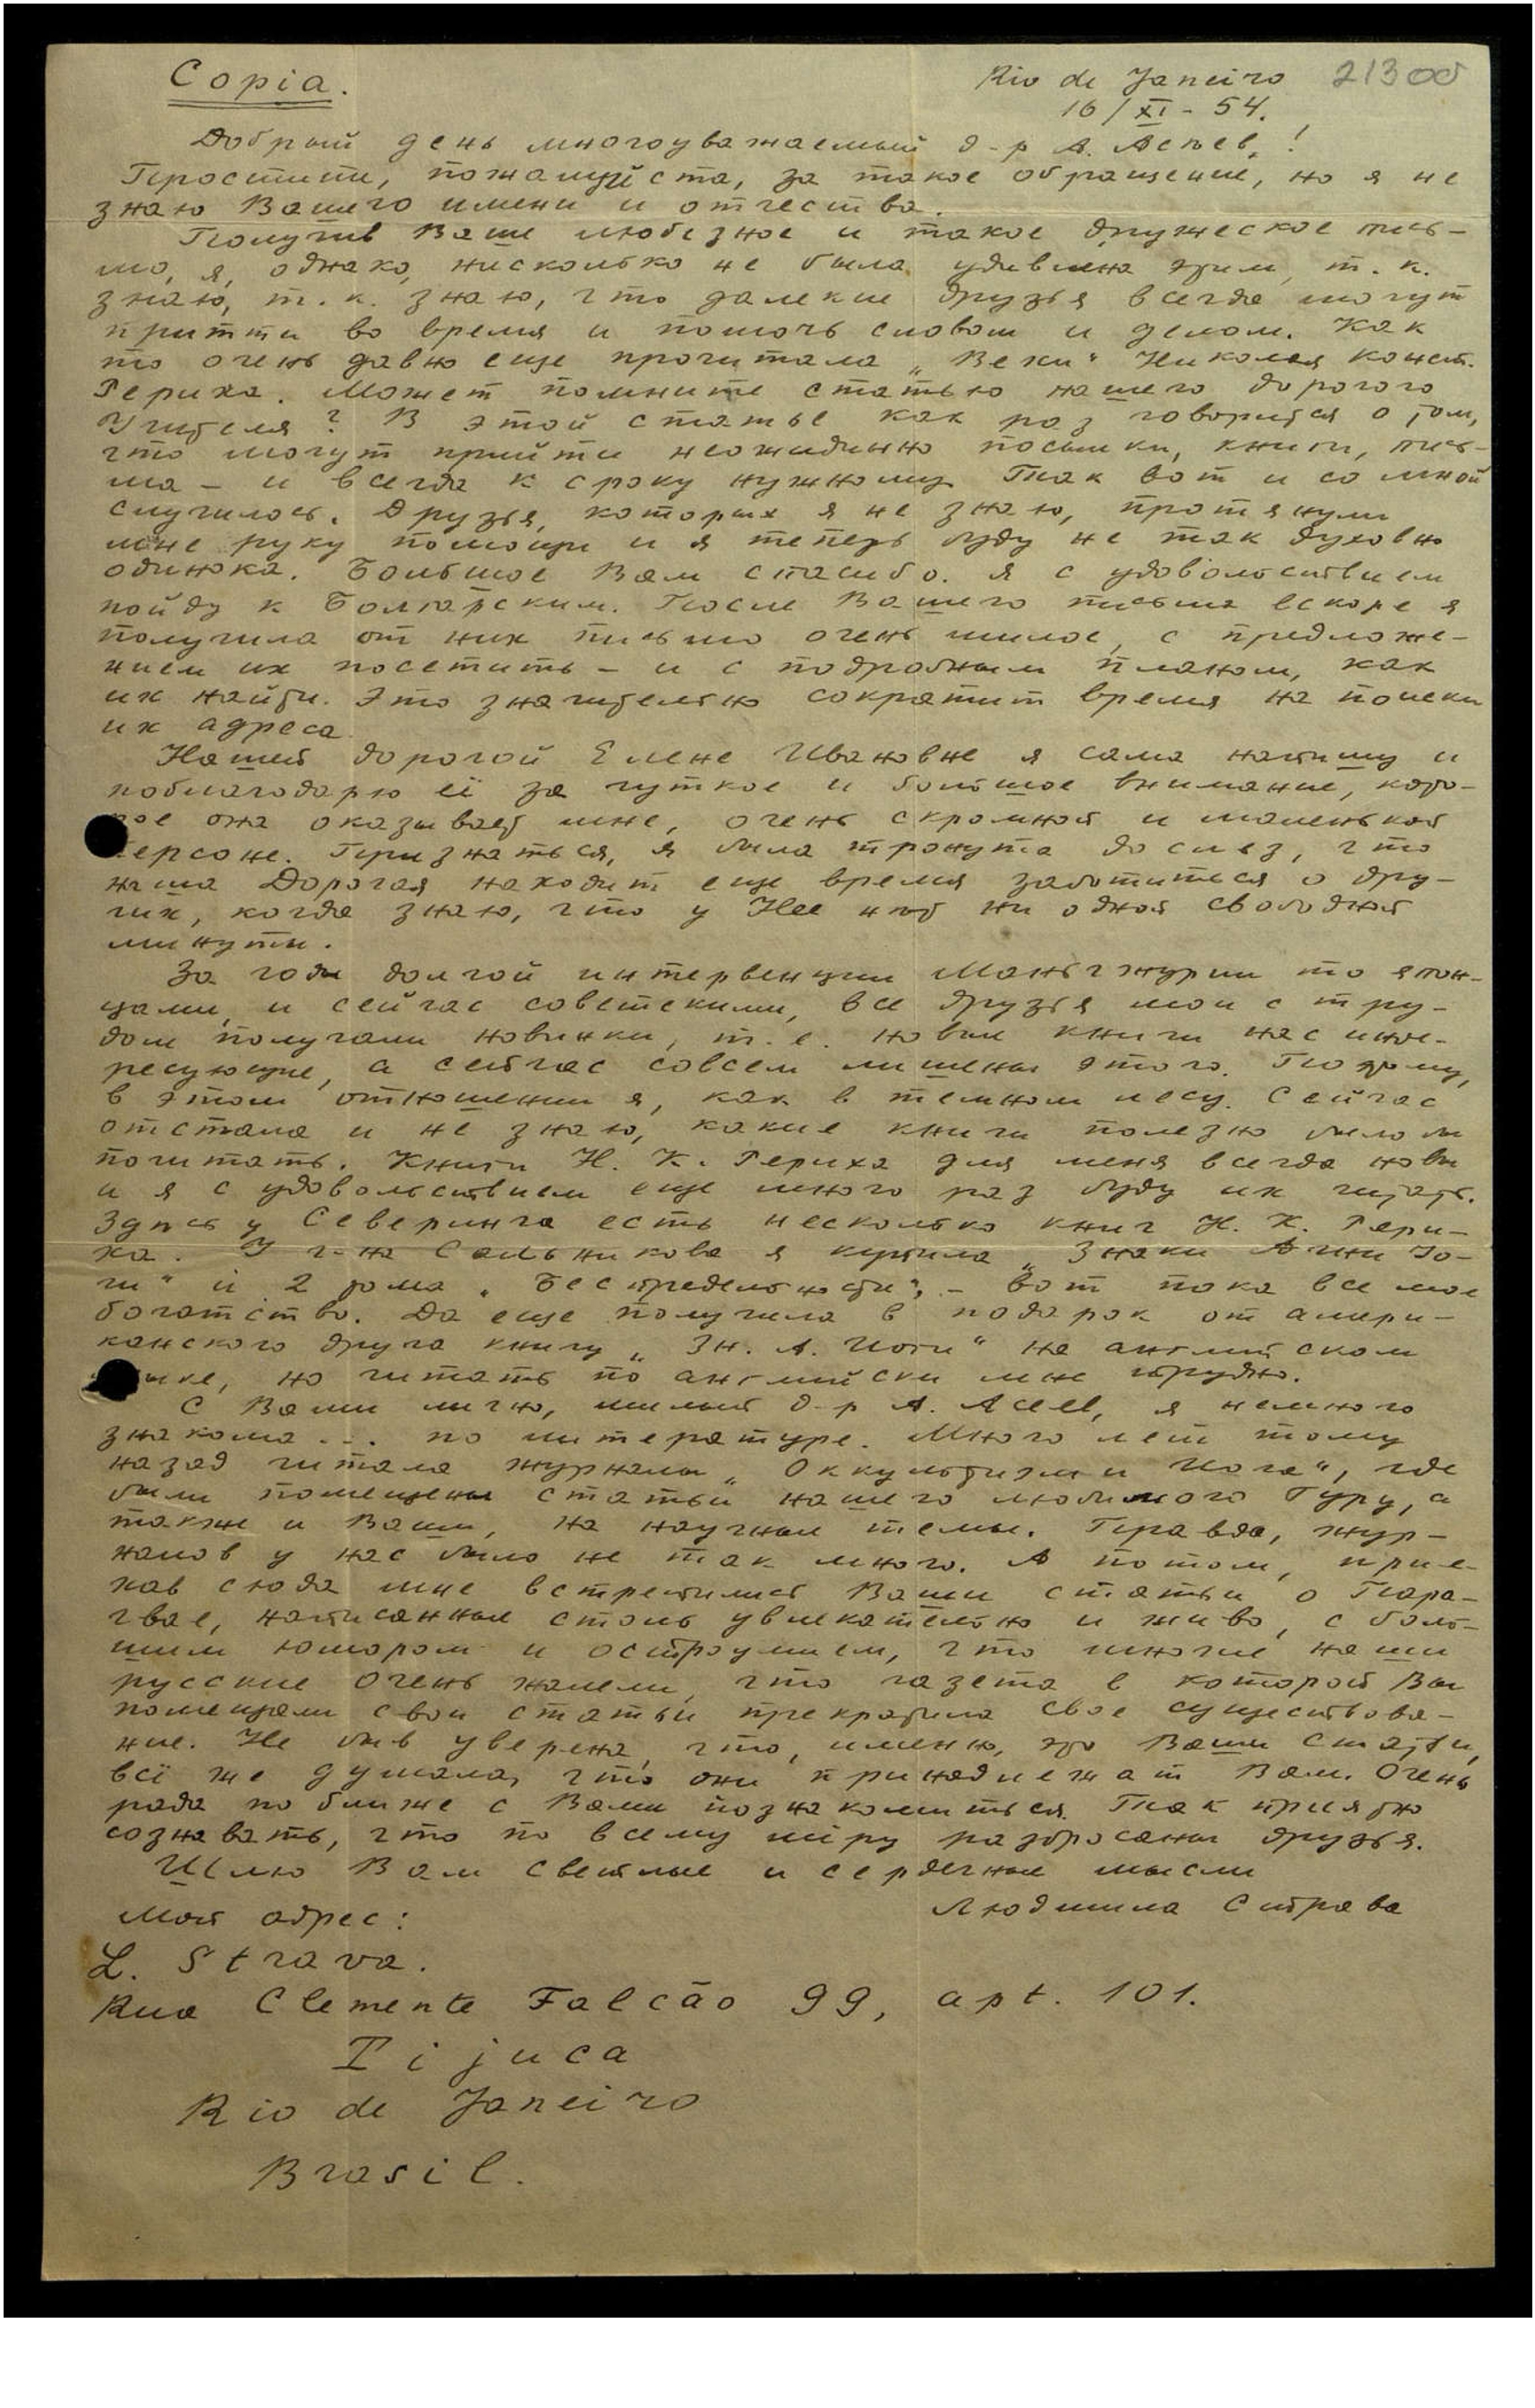 Copia.
Rio de Janeiro 21300
16/XI - 54.
Добрый день многоуважаемый д-р А. Асеев!
Простите, пожалуйста, за такое обращение, но я не
знаю Вашего имени и отчества.
Получив Ваше любезное и такое дружеское пись-
мо, я, однако, нисколько не была удивлена этим, т. к.
знаю, т. к. знаю, что далекие друзья всегда могут
притти во время и помочь словом и делом. Как
то очень давно еще прочитала „Вехи" Николая Конст.
Рериха. Может помните статью нашего дорогого
Учителя? В этой статье как раз говорится о том,
что могут прийти неожиданно посылки, книги, пись-
ма – и всегда к сроку нужному. Так вот и со мной
случилось. Друзья, которых я не знаю, протянули
мне руку помощи и я теперь буду не так духовно
одинока. Большое Вам спасибо. Я с удовольствием
пойду к Болгарским. После Вашего письма вскоре я
получила от них письмо очень милое, с предложе-
нием их посетить – и с подробным планом, как
их найти. Это значительно сократит время на поиски
их адреса.
Нашей дорогой Елене Ивановне я сама напишу и
поблагодарю её за чуткое и большое внимание, кото-
рое она оказывает мне, очень скромной и маленькой
персоне. Признаться, я была тронута до слез, что
наша Дорогая находит еще время заботиться о дру-
гих, когда знаю, что у Нее нет ни одной свободной
минуты.
За годы долгой интервенции Маньчжурии то япон-
цами, и сейчас советскими, все друзья мои с тру-
дом получали новинки, т. е. новые книги нас инте-
ресующие, а сейчас совсем лишены этого. Поэтому,
в этом отношении я, как в темном лесу. Сейчас
отстала и не знаю, какие книги полезно было бы
почитать. Книги Н. К. Рериха для меня всегда новы
и я с удовольствием еще много раз буду их читать.
Здесь у Северинга есть несколько книг Н. К. Рери-
ха. У г-на Сальникова я купила „Знаки Агни Йо-
ги" и 2 тома „Беспредельности", – вот пока все мое
богатство. Да еще получила в подарок от амери-
канского друга книгу „Зн. А. Йоги" на английском
языке, но читать по английски мне трудно.
С Вами лично, милый д-р А. Асеев, я немного
знакома ... по литературе. Много лет тому
назад читала журналы „Оккультизм и Йога", где
были помещены статьи нашего любимого Гуру, а
также и Ваши, на научные темы. Правда, жур-
налов у нас было не так много. А потом, прие-
хав сюда мне встретились Ваши статьи о Пара-
гвае, написанные столь увлекательно и живо, с боль-
шим юмором и остроумием, что многие наши
русские очень жалели, что газета в которой Вы
помещали свои статьи прекратила свое существова-
ние. Не быв уверена, что, именно, это Ваши статьи,
всё же думала, что они принадлежат Вам. Очень
рада по ближе с Вами познакомиться. Так приятно
сознавать, что по всему міру разбросаны друзья.
Шлю Вам светлые и сердечные мысли
Людмила Страва
Мой адрес:
L. Strava.
Rua Clemente Falcão 99, apt. 101.
Tijuca
Rio de Janeiro
Brasil.